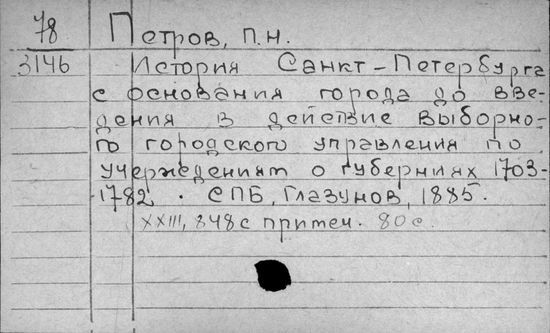 78 Петров, П.Н.
3146 История Санкт-Петербурга
с основания города до вве-
дения в действие выборно-
го городского управления по
учереждениям о губерниях 1703-
-1782. СПБ, Глазунов, 1885.
XXIII, 848с примеч. 80с.